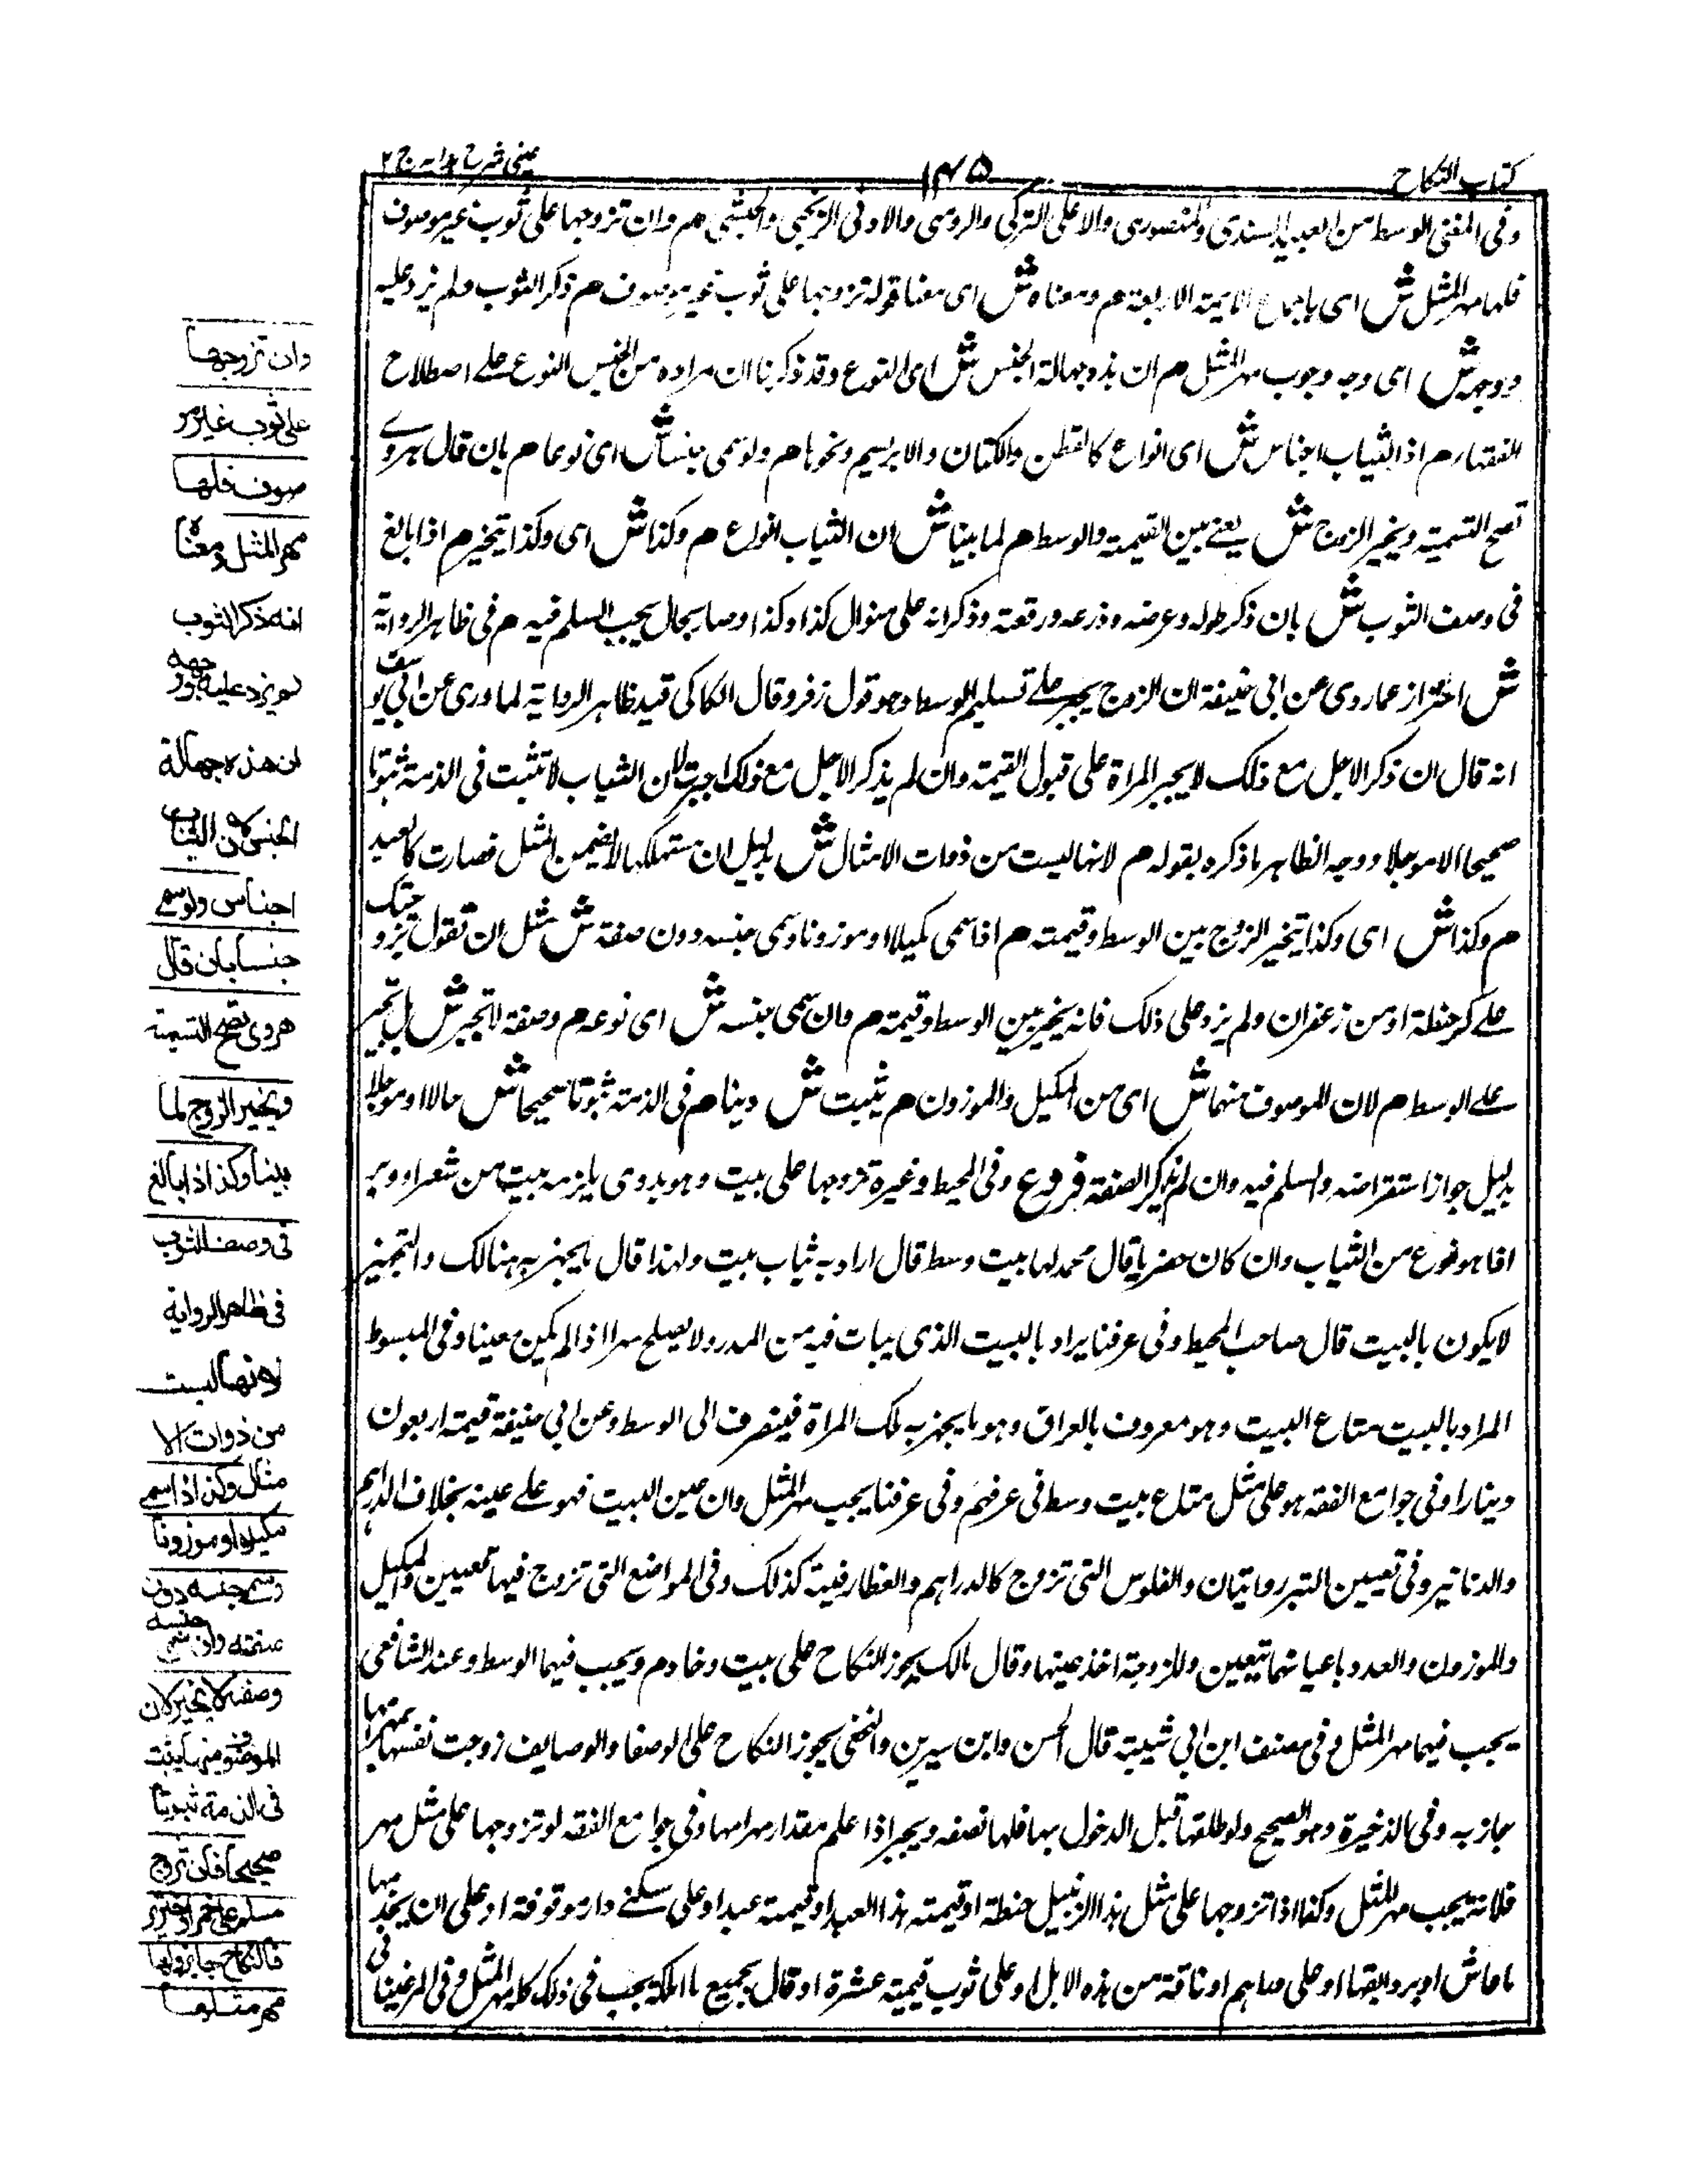 كتاب النكاح
١٤٥
عينى شرح هدايه ج ٢
وفى المغنى الوسط من العبيد السندى والمنصورى والاعلى التركى والرومى والادنى الزنجى والحبشى م وان تزوجها على ثوب غير موصوف
فلها مهر المثل ش اى باجماع الائمة الاربعة م ومعناه ش اى معنا قوله تزوجها على ثوب غير موصوف م ذكر الثوب ولم يزد عليه
ووجهه ش اى وجه وجوب مهر المثل م ان هذه جهالة الجنس ش اى النوع وقد ذكرنا ان مراده من الجنس النوع على اصطلاح
الفقهاء م اذ الثياب اجناس ش اى انواع كالقطن والكتان والابريسم ونحوها م ولو سمى جنسا ش اى نوعا م بان قال هروى
تصح التسمية ويخير الزوج ش يعنى بين القيمة والوسط م لما بينا ش ان الثياب انواع م وكذا ش اى وكذا يتخير م اذا بالغ
فى وصف الثوب ش بان ذكر طوله وعرضه وذرعه ورقعته وذكر انه على منوال كذا وكذا وصار بحال يجب السلم فيه م فى ظاهر الرواية
ش احتراز عما روى عن ابى حنيفة ان الزوج يجبر على تسليم الوسط وهو قول زفر وقال الكاكى قيد ظاهر الرواية لما روى عن ابى يوسف
انه قال ان ذكر الاجل مع ذلك لا يجبر المراة على قبول القيمة وان لم يذكر الاجل مع ذلك اجبرت لان الثياب لا تثبت فى الذمة ثبوتا
صحيحا الا موجلا ووجه الظاهر ما ذكره بقوله م لانها ليست من ذوات الامثال ش بدليل ان مستهلكها لا يضمن المثل فصارت كالعبيد
م وكذا ش اى وكذا يتخير الزوج بين الوسط وقيمته م اذا سمى مكيلا او موزونا وسمى جنسه دون صفته ش مثل ان تقول تزوجتك
على كر حنطة او من زعفران ولم يزد على ذلك فانه يخير بين الوسط وقيمته م وان سمى جنسه ش اى نوعه م وصفته لا يخير ش بل يجبر
على الوسط م لان الموصوف منهما ش اى من المكيل والموزون م يثبت ش دينا م فى الذمة ثبوتا صحيحا ش حالا او موجلا
بدليل جواز استقراضه والسلم فيه وان لم يذكر الصفة فروع وفى المحيط وغيره تزوجها على بيت وهو بدوى يلزمه بيت من شعر او وبر
اذا هو نوع من الثياب وان كان حضريا قال محمد لها بيت وسط قال اراد به ثياب بيت ولهذا قال ما يجهز به هنالك والتجهيز
لا يكون بالبيت قال صاحب المحيط وفى عرفنا يراد بالبيت الذى يبات فيه من المدر ولا يصلح مهرا اذا لم يكن معينا وفى المبسوط
المراد بالبيت متاع البيت وهو معروف بالعراق وهو ما يجهز به تلك المراة فينصرف الى الوسط وعن ابى حنيفة قيمته اربعون
دينارا وفى جوامع الفقه هو على مثل متاع بيت وسط فى عرفهم وفى عرفنا يجب مهر المثل وان عين البيت فهو على عينه بخلاف الدراهم
والدنانير وفى تعيين التبر روايتان والفلوس التى تروج كالدراهم والغطارفية كذلك وفى المواضع التى تروج فيها تتعيين والمكيل
والموزون والعدد باعيانها تتعين وللزوجة اخذ عينها وقال مالك يجوز النكاح على بيت وخادم ويجب فيهما الوسط وعند الشافعى
يجب فيهما مهر المثل وفى مصنف ابن ابى شيبة قال الحسن وابن سيرين والنخعى يجوز النكاح على الوصفا والوصايف زوجت نفسها بمهر امها
جاز به وفى الذخيرة وهو الصحيح ولو طلقها قبل الدخول بها فلها نصفه ويجبر اذا علم مقدار مهر امها وفى جوامع الفقه لو تزوجها على مثل مهر
فلانة يجب مهر المثل وكذا اذا تزوجها على مثل هذا الزنبيل حنطة او قيمته هذا العبد او قيمته عبد او على سكنى دار موقوفة او على ان يخدمها
ما عاش او يرد ابقها او على دراهم او ناقة من هذه الابل او على ثوب قيمته عشرة او قال بجميع ما املكه يجب فى ذلك كله مهر المثل وفى المرغينانى
وان تزوجها
على ثوب غير مو
صوف فلها
مهر المثل ومعنا
انه ذكر الثوب
لم يزد عليه ووجهه
ان هذه جهالة
الجنس لان الثياب
اجناس ولو سمى
جنسا بان قال
هروى تصح التسمية
ويخير الزوج لما
بينا وكذا اذا بالغ
فى وصف الثوب
فى ظاهر الرواية
لانها ليست
من ذوات الا
مثال وكذا اذا سمى
مكيلا او موزونا
وسمى جنسه دون
صفته وان سمى جنسه
وصفته لا يخير لان
الموصوف منهما يثبت
فى الذمة ثبوتا
صحيحا فان تزوج
مسلم على خمر او خنزير
فالنكاح جايز ولها
مهر مثلها